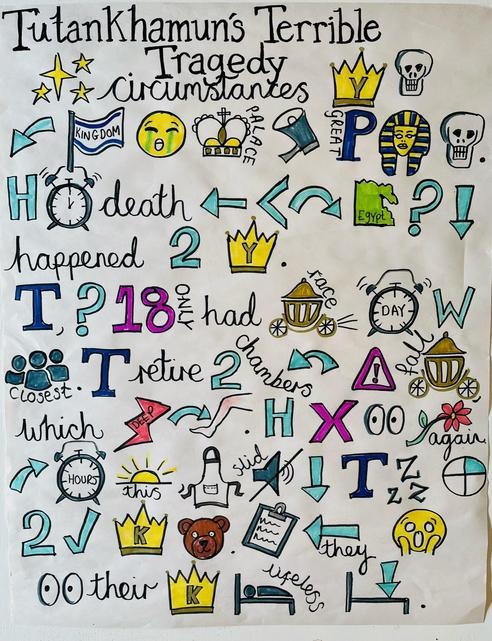 Tutankhamun's Terrible
Tragedy
circumstances Y
KINGDOM PALACE GREAT P .
H death < Egypt ?
happened 2 Y .
T, ? 18 ONLY had race DAY W
closest . T retire 2 chambers ! fall
which DEEP . H X again.
HOURS this slid T z z z
2 K . they
their K lifeless .